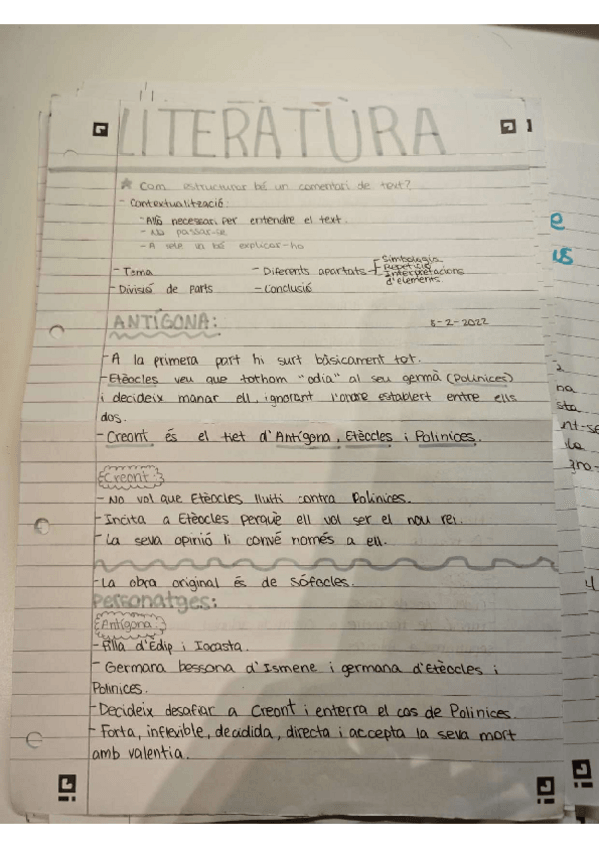 LITERATURA
★ Com estructurar bé un comentari de text?
- Contextualització:
- Allò necessari per entendre el text.
- No passar-se
- A sete un bé explicar-ho
- Tema - Diferents apartats Simbologia
Repetició
Interpretacions
d'elements
- Divisió de parts - Conclusió
ANTÍGONA: 8-2-2022
- A la primera part hi surt bàsicament tot.
- Etèocles veu que tothom "odia" al seu germà (Polinices)
i decideix manar ell, ignorant l'ordre establert entre ells
dos.
- Creont és el tiet d'Antígona, Etèocles i Polinices.
Creont:
- No vol que Etèocles lluiti contra Polinices.
- Incita a Etèocles perquè ell vol ser el nou rei.
- La seva opinió li convé només a ell.
- La obra original és de Sófocles.
Personatges:
Antígona:
- Filla d'Èdip i Iocasta.
- Germana bessona d'Ismene i germana d'Etèocles i
Polinices.
- Decideix desafiar a Creont i enterra el cos de Polinices.
- Forta, inflexible, decidida, directa i accepta la seva mort
amb valentia.